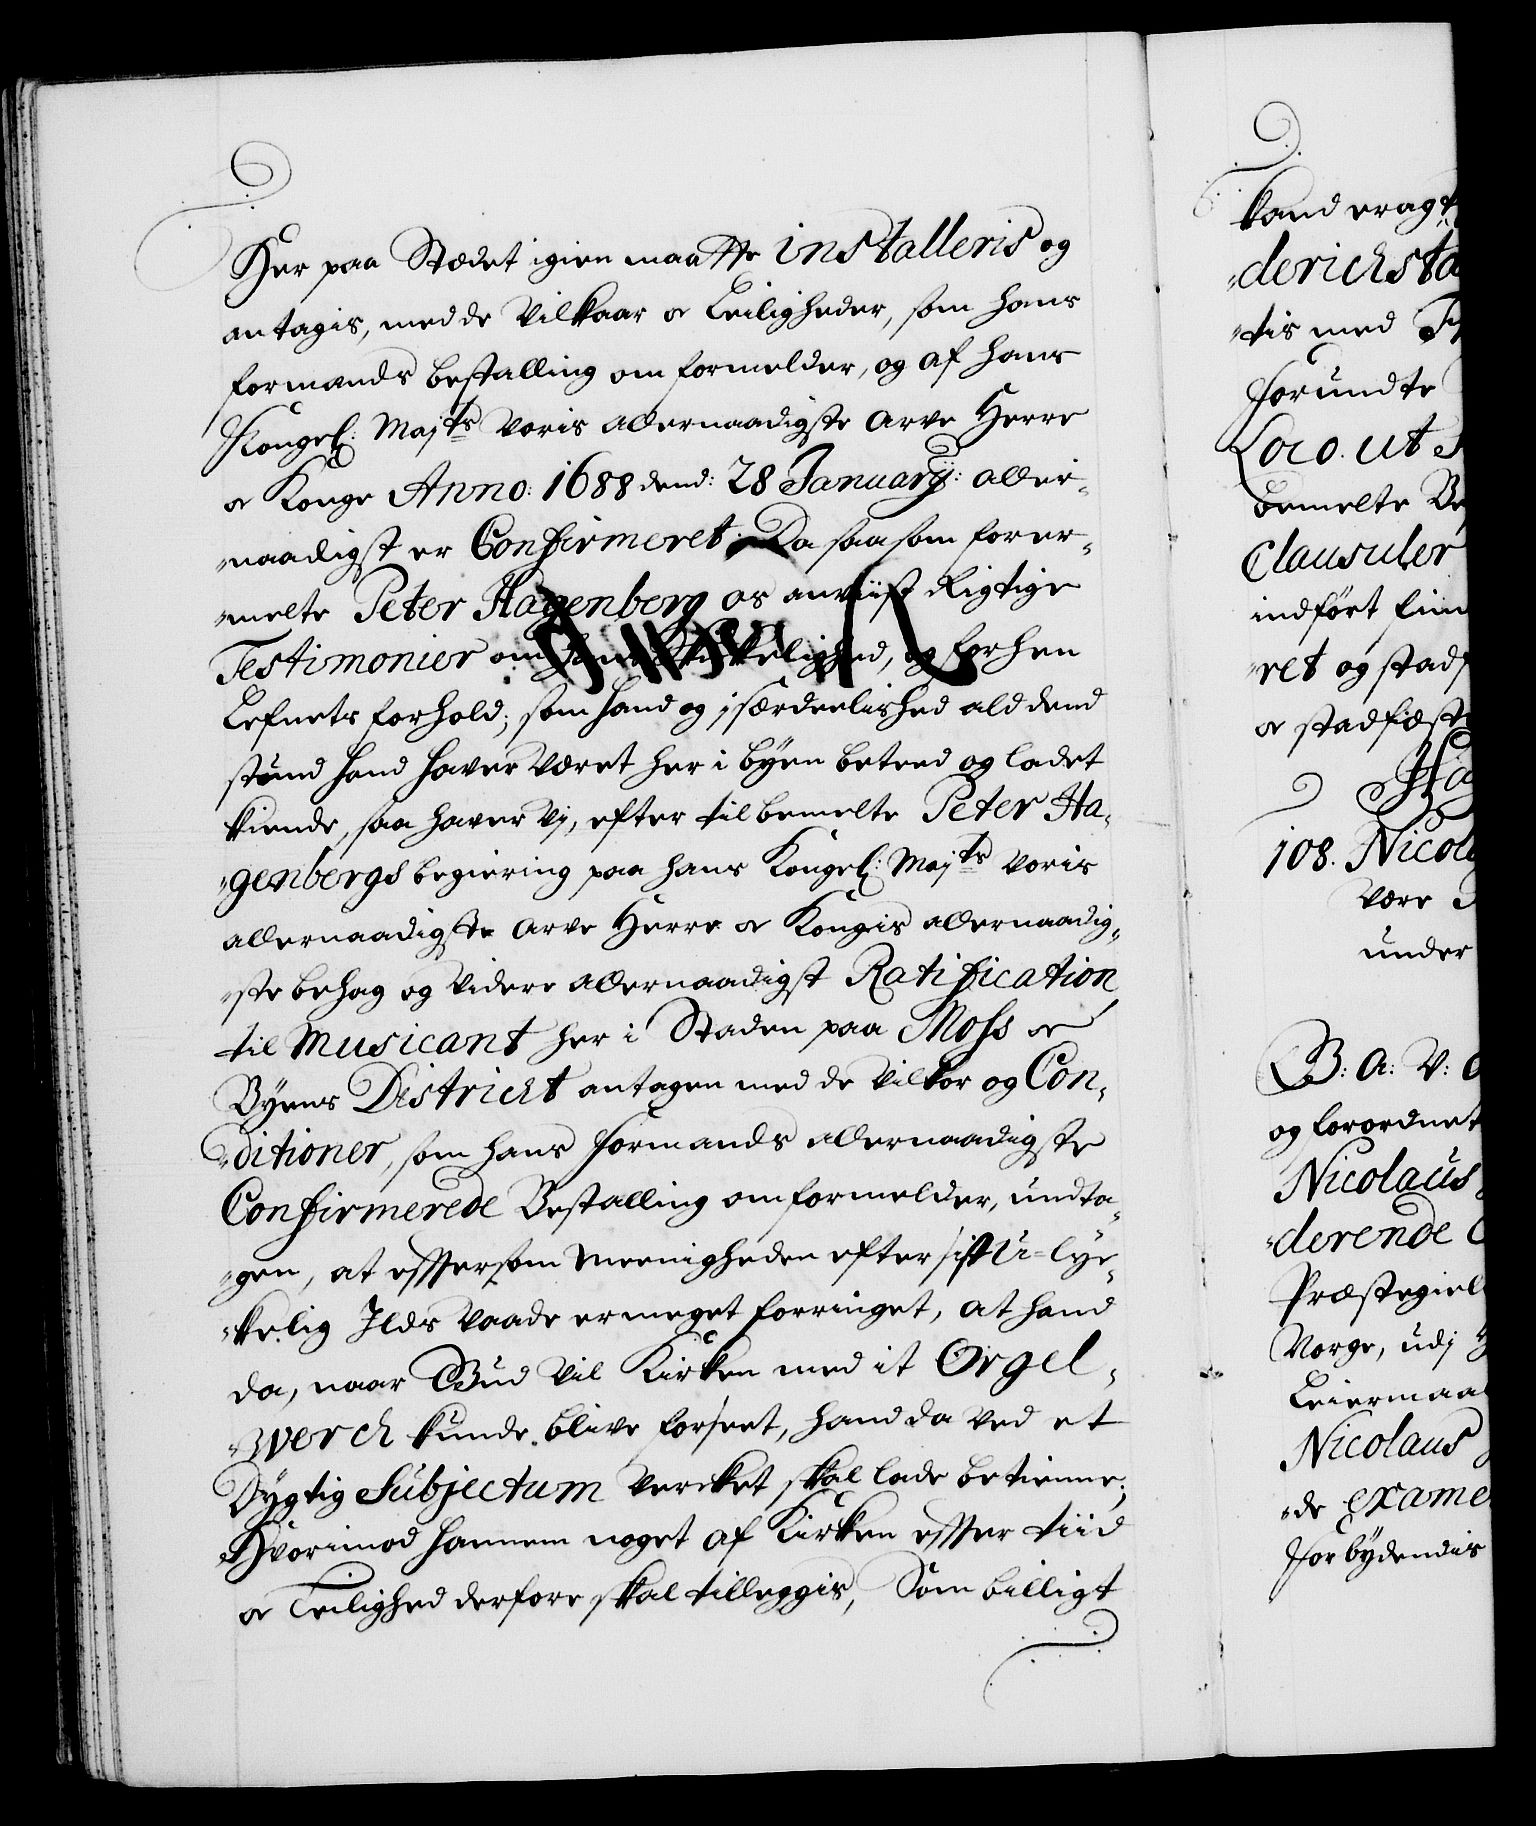 Her paa Stædet igien maatte installeris og
antagis, med de Vilkaar oc Leiligheder, som hans
formands bestalling om formelder, og af hans
Kongel: Majts voris allernaadigste Arve Herre
oc Konge Anno: 1688 dend: 28 January: aller¬
¬naadigst er Confirmeret. Da saasom forer¬
¬melte Peter Hagenberg os anviist Rigtige
Testimonier om hans Skikkelighed, og forhen
Lefnets forhold; som hand og jsærdeelished ald dend
stund hand haver været her i byen beteed og ladet
kiende, saa haver vj, efter til bemelte Peter Ha¬
¬genbergs begiering paa hans Kongel: Majts voris
allernaadigste Arve Herre oc Kongis allernaadig¬
¬ste behag og videre allernaadigst Ratification
til Musicant her i Staden paa Moss oc
Byens District antagen med de vilkor og Con¬
¬ditioner, som hans formands allernaadigste
Confirmerede Bestalling om formelder, undta¬
¬gen, at eftersom Meenigheden efter sist U=lyc¬
¬kelig Jlds vaade er meget forringet, at hand
da, naar Gud vil Kirken med it Orgel¬
¬werch kunde blive forseet, hand da ved et
Dygtig Subjectum vercket skal lade betienne;
Hvorimod hannem noget af Kirken efter tiid
oc Leilighed derfore skal tilleggis, Som billigt
kand eragt
¬derichsta
¬tis med
forundte
Loco. ut s
bemelte Be
Clausuler
indført fin
¬ret og stadf
oc stadfæst
Hag
108. Nicola
være
under
G: A: V:
og forordnet
Nicolaus
¬derende
Præstegiel
Norge, udj
Leiermaal
Nicolaus
¬de exame
Forbydendis